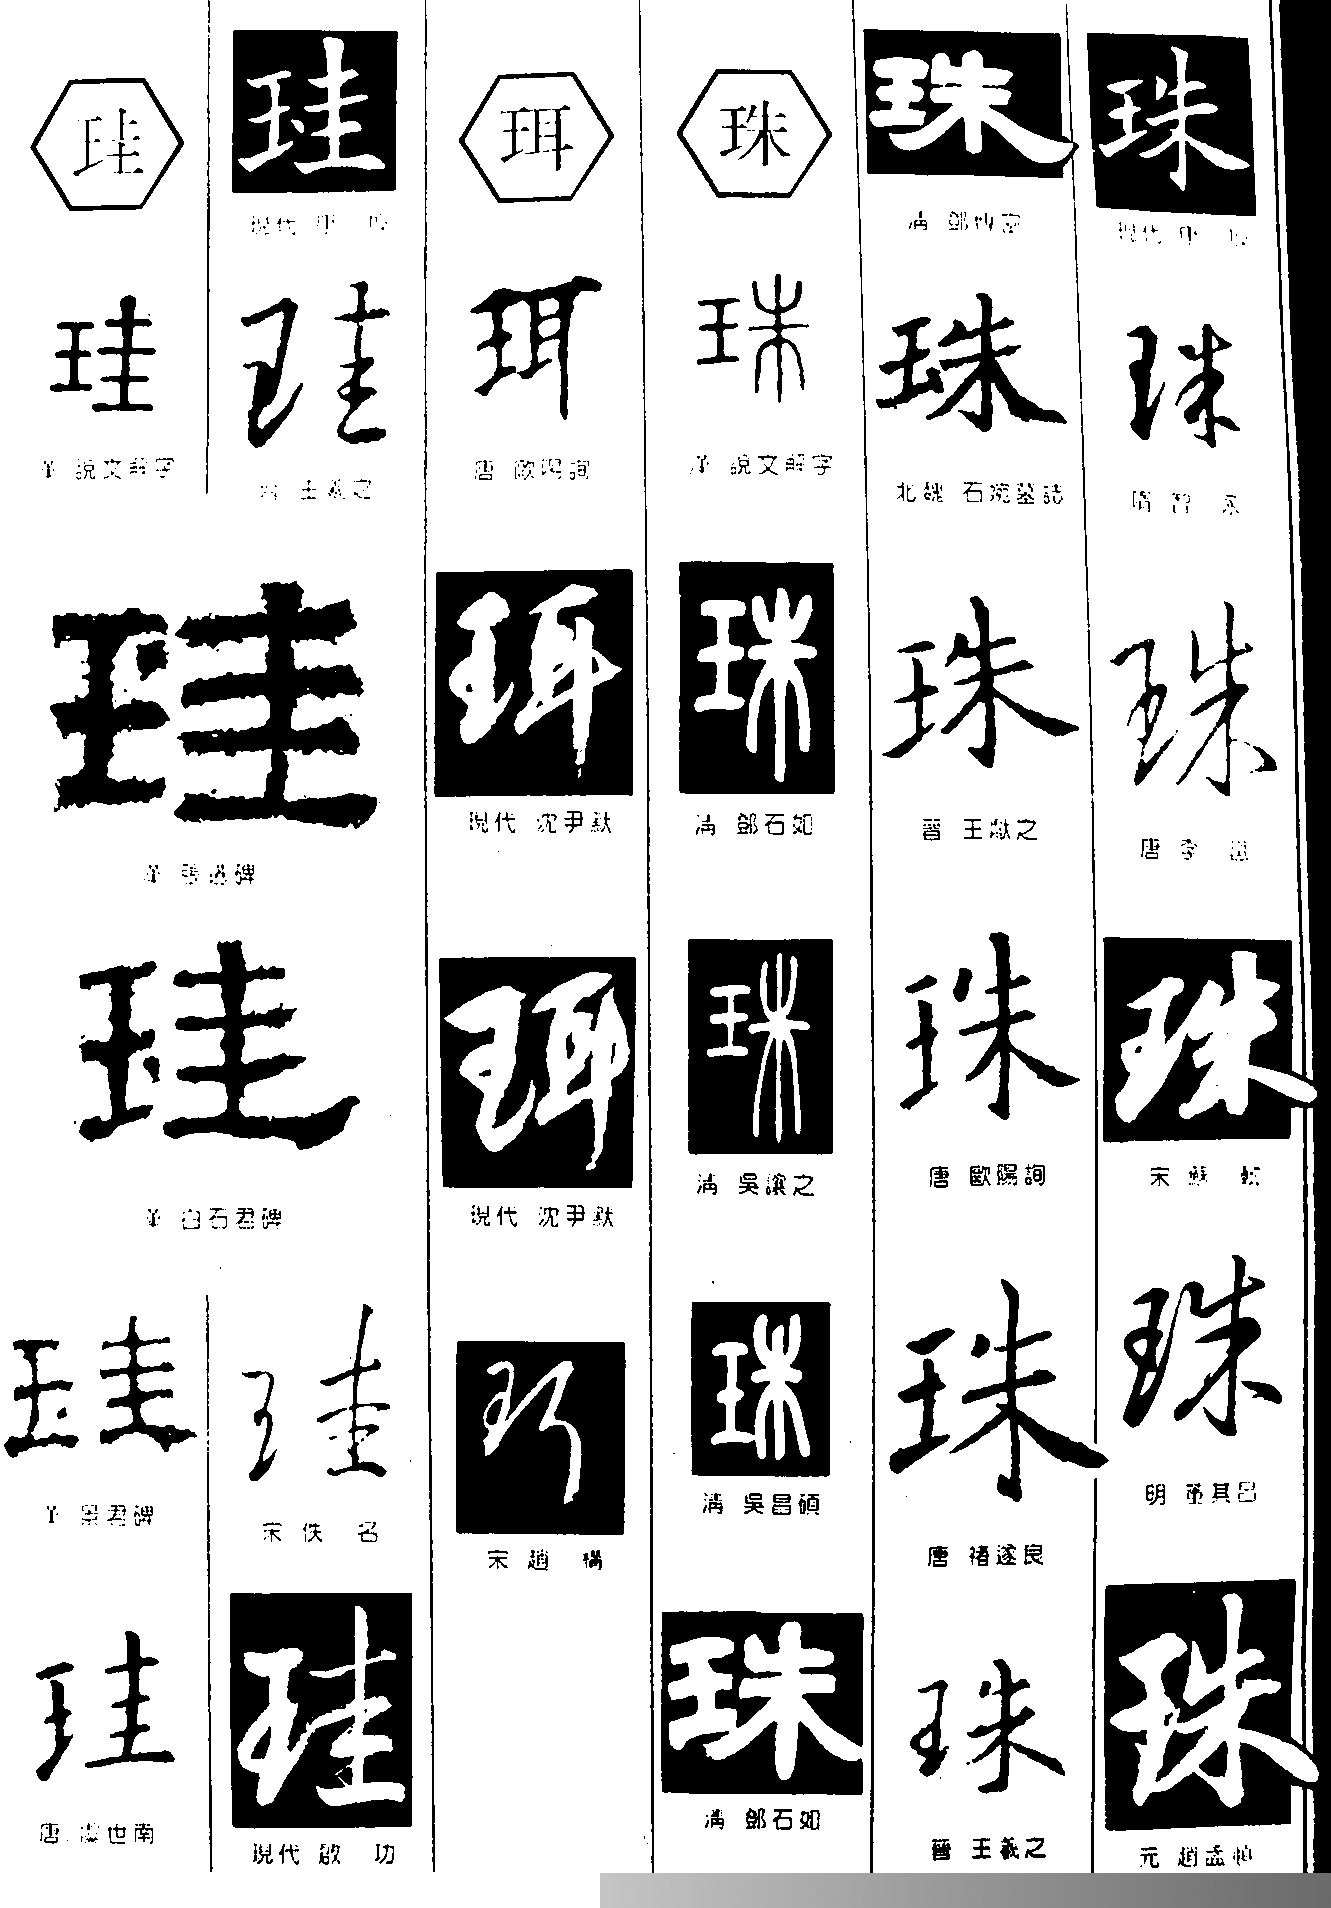 珪
珪
漢 說文解字
珪
珪
漢 白石君碑
珪
漢 景君碑
珪
唐 虞世南
珪
現代 唐
珪
晉 王羲之
珪
宋 佚 名
珪
現代 啟 功
珥
珥
唐 歐陽詢
珥
現代 沈尹默
珥
現代 沈尹默
珥
宋 趙 構
珠
珠
漢 說文解字
珠
清 鄧石如
珠
清 吳讓之
珠
清 吳昌碩
珠
清 鄧石如
珠
清 鄧傳密
珠
北魏 石婉墓誌
珠
晉 王獻之
珠
唐 歐陽詢
珠
唐 褚遂良
珠
晉 王羲之
珠
現代 唐
珠
隋 智 永
珠
唐 李 邕
珠
宋 蘇 軾
珠
明 董其昌
珠
元 趙孟頫